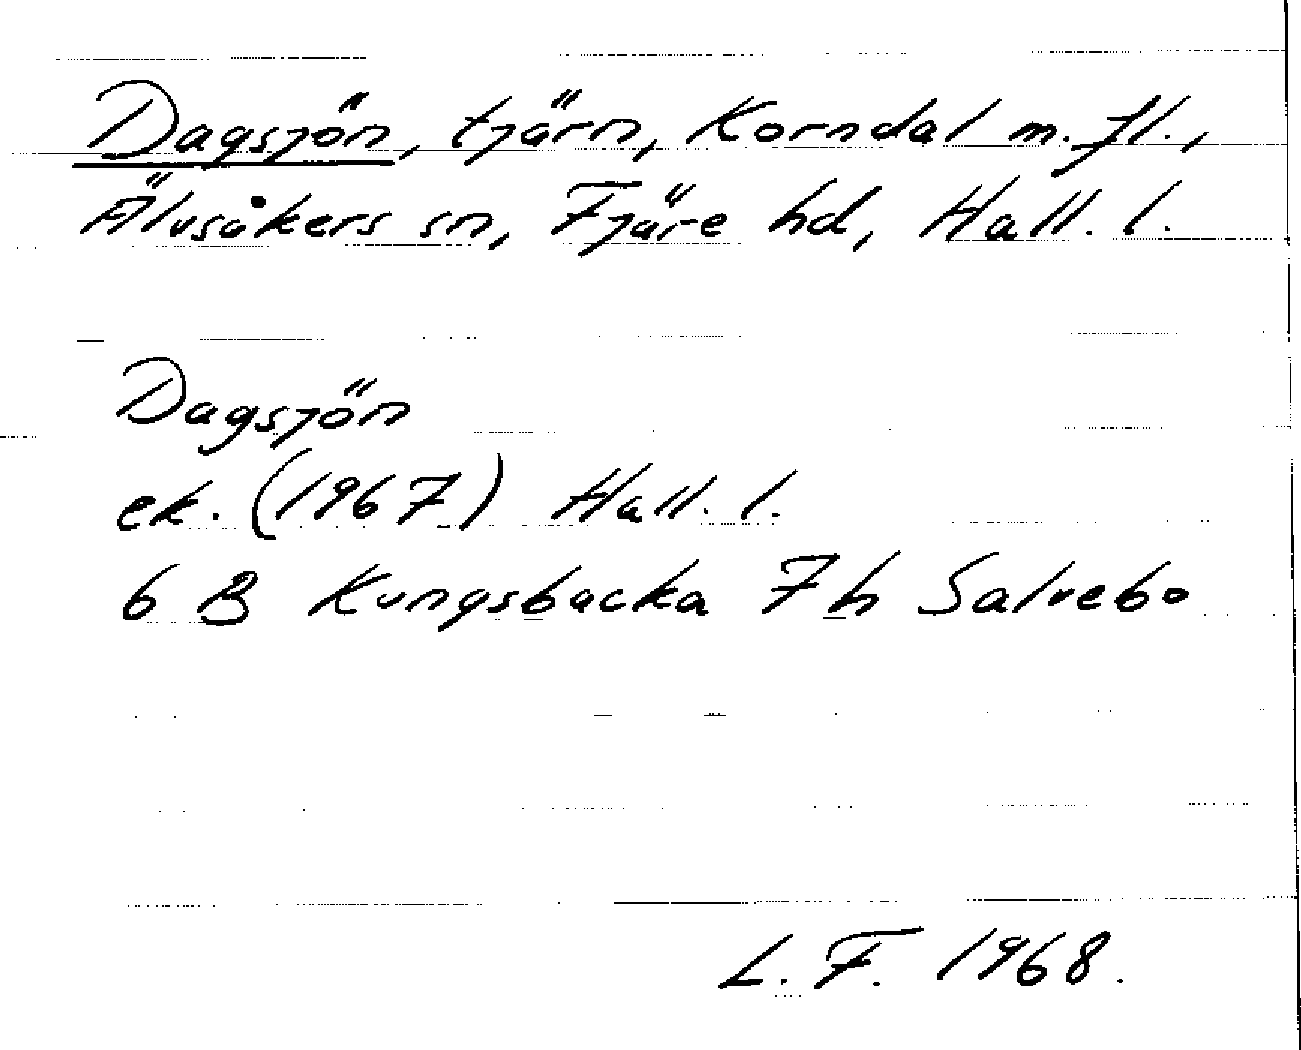 Dagsjön, tjärn, Korndal m. fl.,
Älvsåkers sn, Fjäre hd, Hall. l.
Dagsjön
ek. (1967) Hall. l.
6 B Kungsbacka 7 h Salvebo
L. F. 1968.